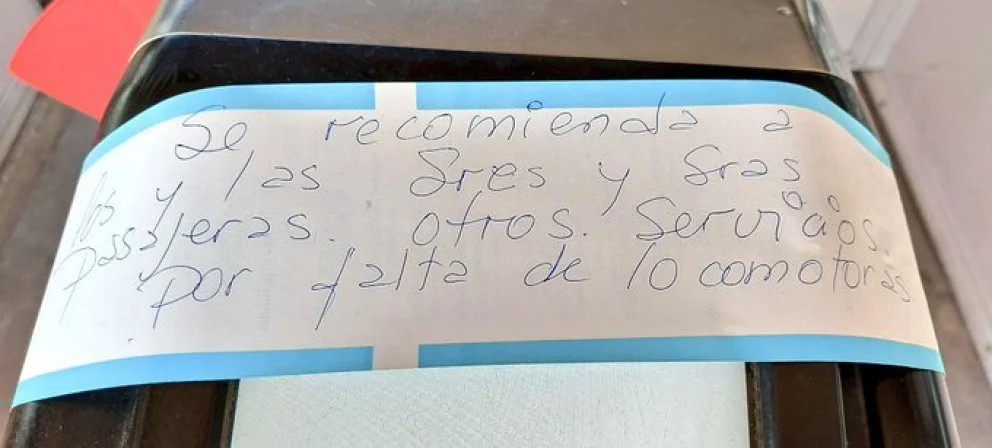 Se recomienda a
los y las Sres y Sras
passajeras. otros. Servicios.
por falta de locomotoras